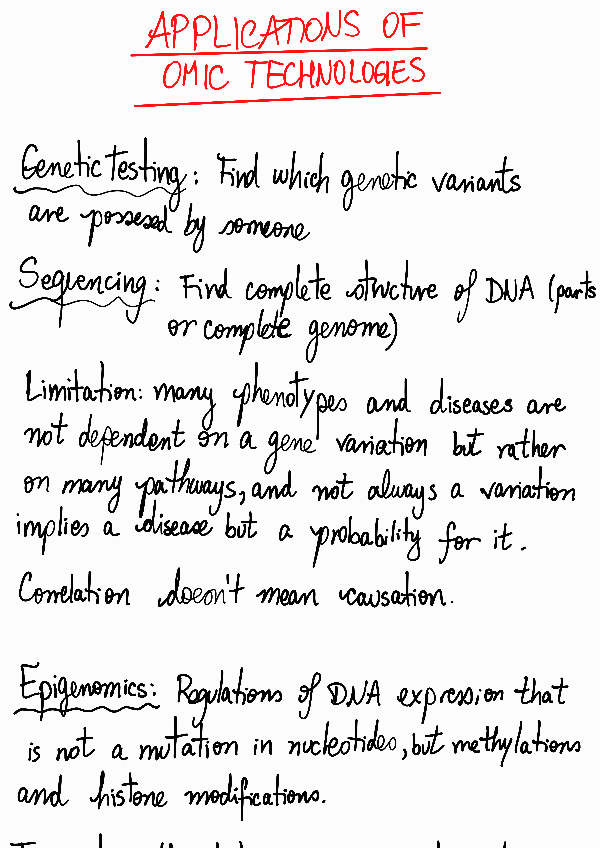 APPLICATIONS OF
OMIC TECHNOLOGIES
Genetic testing: Find which genetic variants
are possesed by someone
Sequencing: Find complete structure of DNA (parts
or complete genome)
Limitation: many phenotypes and diseases are
not dependent on a gene variation but rather
on many pathways, and not always a variation
implies a disease but a probability for it.
Correlation doeon't mean causation.
Epigenomics: Regulations of DNA expression that
is not a mutation in nucleotides, but methylations
and histone modifications.